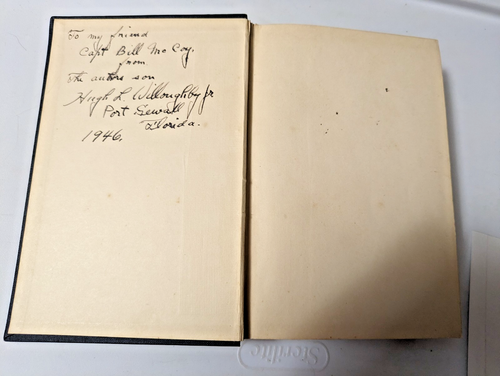 To my friend
Capt Bill McCoy.
from
The autors son
Hugh L. Willoughby Jr
Port Sewall
Florida.
1946.
Sterilite